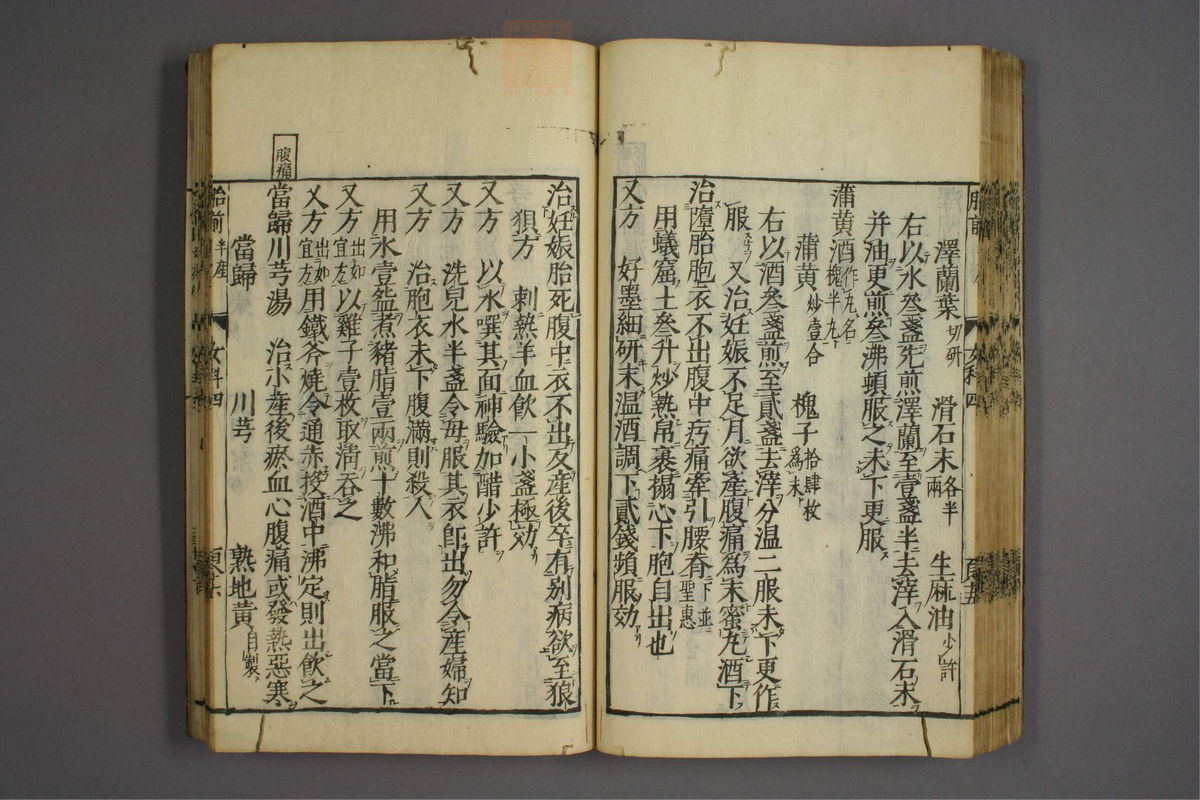 澤蘭葉切研　滑石末各半兩　生麻油少許
右以水叁盞先煎澤蘭至壹盞半去滓入滑石末
并油更煎叁沸頓服之未下更服
蒲黄酒作丸名槐半丸
蒲黄炒壹合　槐子拾肆枚為末
右以酒叁盞煎至貳盞去滓分温二服未下更作
服　又治妊娠不足月欲產腹痛為末蜜丸酒下
治墮胎胞衣不出腹中㽲痛牽引腰脊下並聖惠
用蟻窟土叁升炒熱帛裹搨心下胞自出也
又方　好墨細研末温酒調下貳錢頻服效
治妊娠胎死腹中衣不出及產後卒有别病欲至狼
狽方　刺熱羊血飲一小盞極効
又方　以水噀其面神驗加醋少許
又方　洗兒水半盞令母服其衣卽出勿令產婦知
又方　治胞衣未下腹滿則殺人
用水壹盌煮豬脂壹兩煎十數沸和脂服之當下
又方出如宜左以雞子壹枚取清吞之
又方出如宜左用鐵斧燒令通赤移酒中沸定則出飲之
腹痛
當歸川芎湯　治小產後瘀血心腹痛或發熱惡寒
當歸　川芎　熟地黄自製
胎前半産　女科四